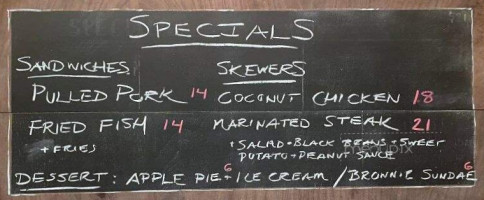 SPECIALS
SANDWICHES
PULLED PORK 14
FRIED FISH 14
+ FRIES
SKEWERS
COCONUT CHICKEN 18
MARINATED STEAK 21
+ SALAD + BLACK BEANS + SWEET
POTATO + PEANUT SAUCE
DESSERT: APPLE PIE + ICE CREAM 6 / BROWNIE SUNDAE 6